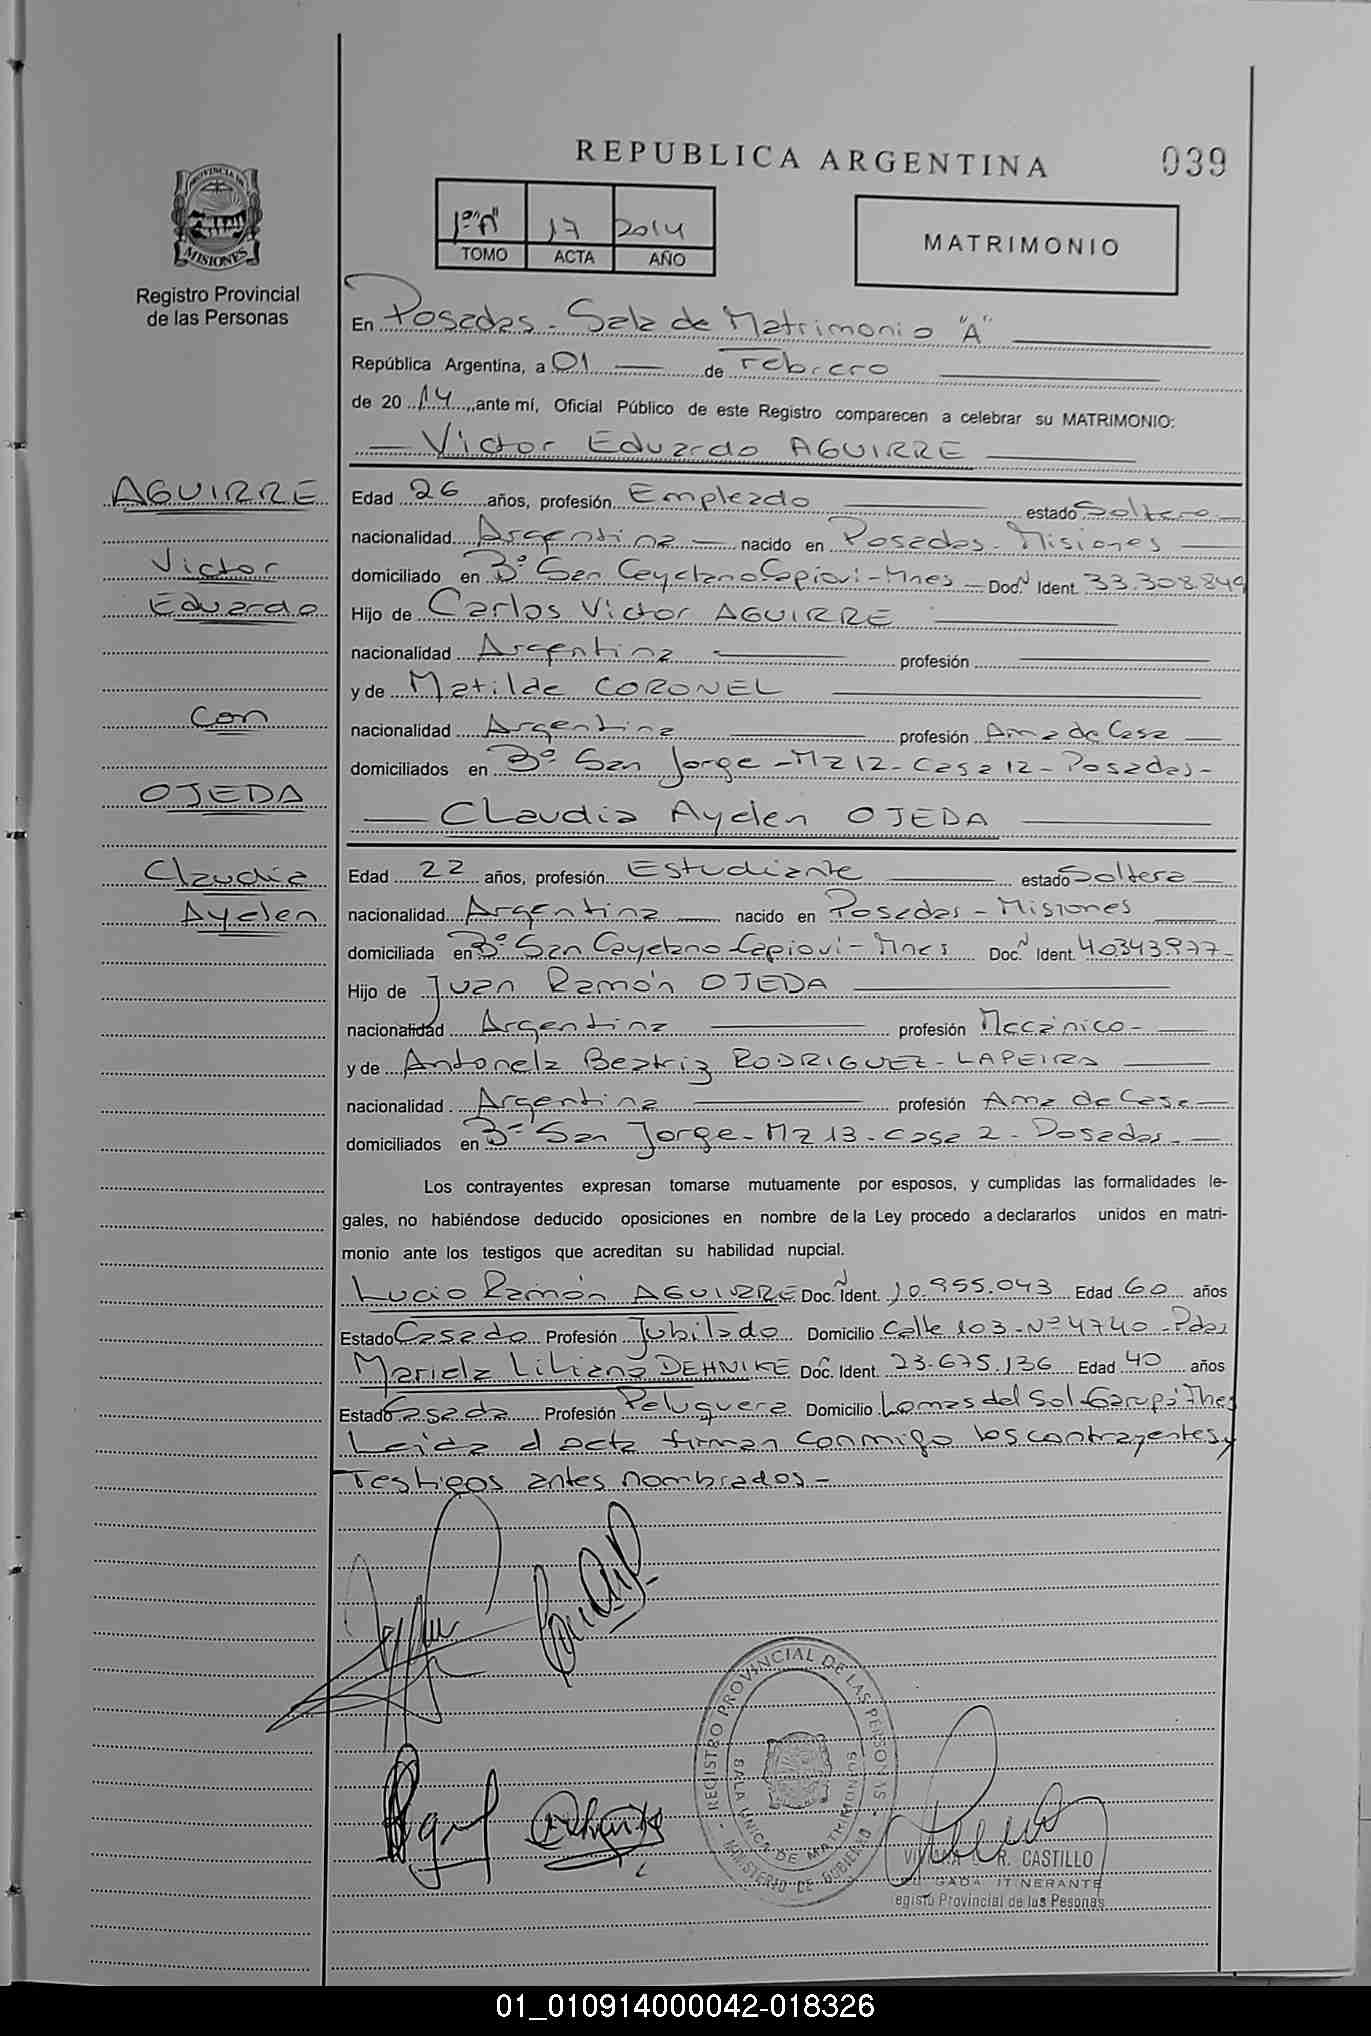 REPUBLICA ARGENTINA
039
PROVINCIA DE
MISIONES
Registro Provincial
de las Personas
1º "A" 17 2014
TOMO ACTA AÑO
MATRIMONIO
En Posadas - Sala de Matrimonio "A"
República Argentina, a 01 de Febrero
de 2014, ante mí, Oficial Público de este Registro comparecen a celebrar su MATRIMONIO:
Victor Eduardo AGUIRRE
AGUIRRE
Victor
Eduardo
con
OJEDA
Claudia
Ayelen
Edad 26 años, profesión Empleado estado Soltero
nacionalidad Argentina nacido en Posadas - Misiones
domiciliado en Bº San Cayetano Capiovi - Mnes Doc. N Ident. 33.308.849
Hijo de Carlos Victor AGUIRRE
nacionalidad Argentina profesión
y de Matilde CORONEL
nacionalidad Argentina profesión Ama de Casa
domiciliados en Bº San Jorge - Mz 12 - Casa 12 - Posadas -
Claudia Ayelen OJEDA
Edad 22 años, profesión Estudiante estado Soltera
nacionalidad Argentina nacido en Posadas - Misiones
domiciliada en Bº San Cayetano Capiovi - Mnes Doc. N Ident. 40.343.977 -
Hijo de Juan Ramón OJEDA
nacionalidad Argentina profesión Mecánico -
y de Antonela Beatriz RODRIGUEZ - LAPEIRA
nacionalidad Argentina profesión Ama de Casa
domiciliados en Bº San Jorge - Mz 13 - Casa 2 - Posadas -
Los contrayentes expresan tomarse mutuamente por esposos, y cumplidas las formalidades le-
gales, no habiéndose deducido oposiciones en nombre de la Ley procedo a declararlos unidos en matri-
monio ante los testigos que acreditan su habilidad nupcial.
Lucio Ramón AGUIRRE Doc. N Ident. 10.955.043 Edad 60 años
Estado Casado Profesión Jubilado Domicilio Calle 103 - Nº 4740 - Pdas
Mariela Liliana DEHNIKE Doc. Ident. 23.675.136 Edad 40 años
Estado Casada Profesión Peluquera Domicilio Lomas del Sol - Garupá Mnes
Leida el acta firman conmigo los contrayentes y
Testigos antes nombrados -
REGISTRO PROVINCIAL DE LAS PERSONAS
SALA UNICA DE MATRIMONIOS
MINISTERIO DE GOBIERNO
R. CASTILLO
ITINERANTE
egisto Provincial de las Pesonas
01_010914000042-018326